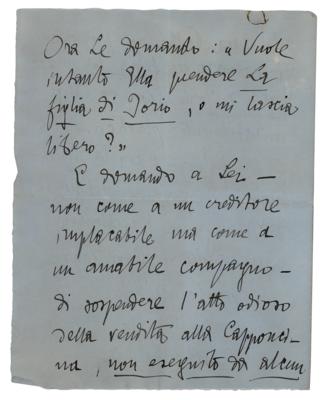 Ora Le domando: « Vuole
intanto Ella prendere La
figlia di Jorio, o mi lascia
libero? »
E domando a Lei —
non come a un creditore
implacabile ma come a
un amabile compagno —
di sospendere l'atto odioso
della vendita alla Capponci-
na, non eseguito da alcun